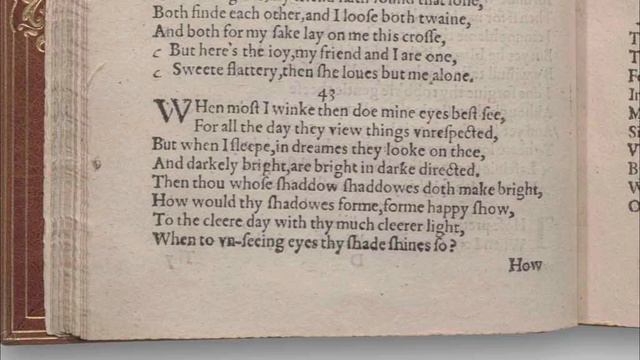 found that losse,
Both finde each other,and I loose both twaine,
And both for my sake lay on me this crosse,
But here's the ioy,my friend and I are one,
Sweete flattery,then she loues but me alone.
43
WHen most I winke then doe mine eyes best see,
For all the day they view things vnrespected,
But when I sleepe,in dreames they looke on thee,
And darkely bright,are bright in darke directed.
Then thou whose shaddow shaddowes doth make bright,
How would thy shadowes forme,forme happy show,
To the cleere day with thy much cleerer light,
When to vn-seeing eyes thy shade shines so?
How